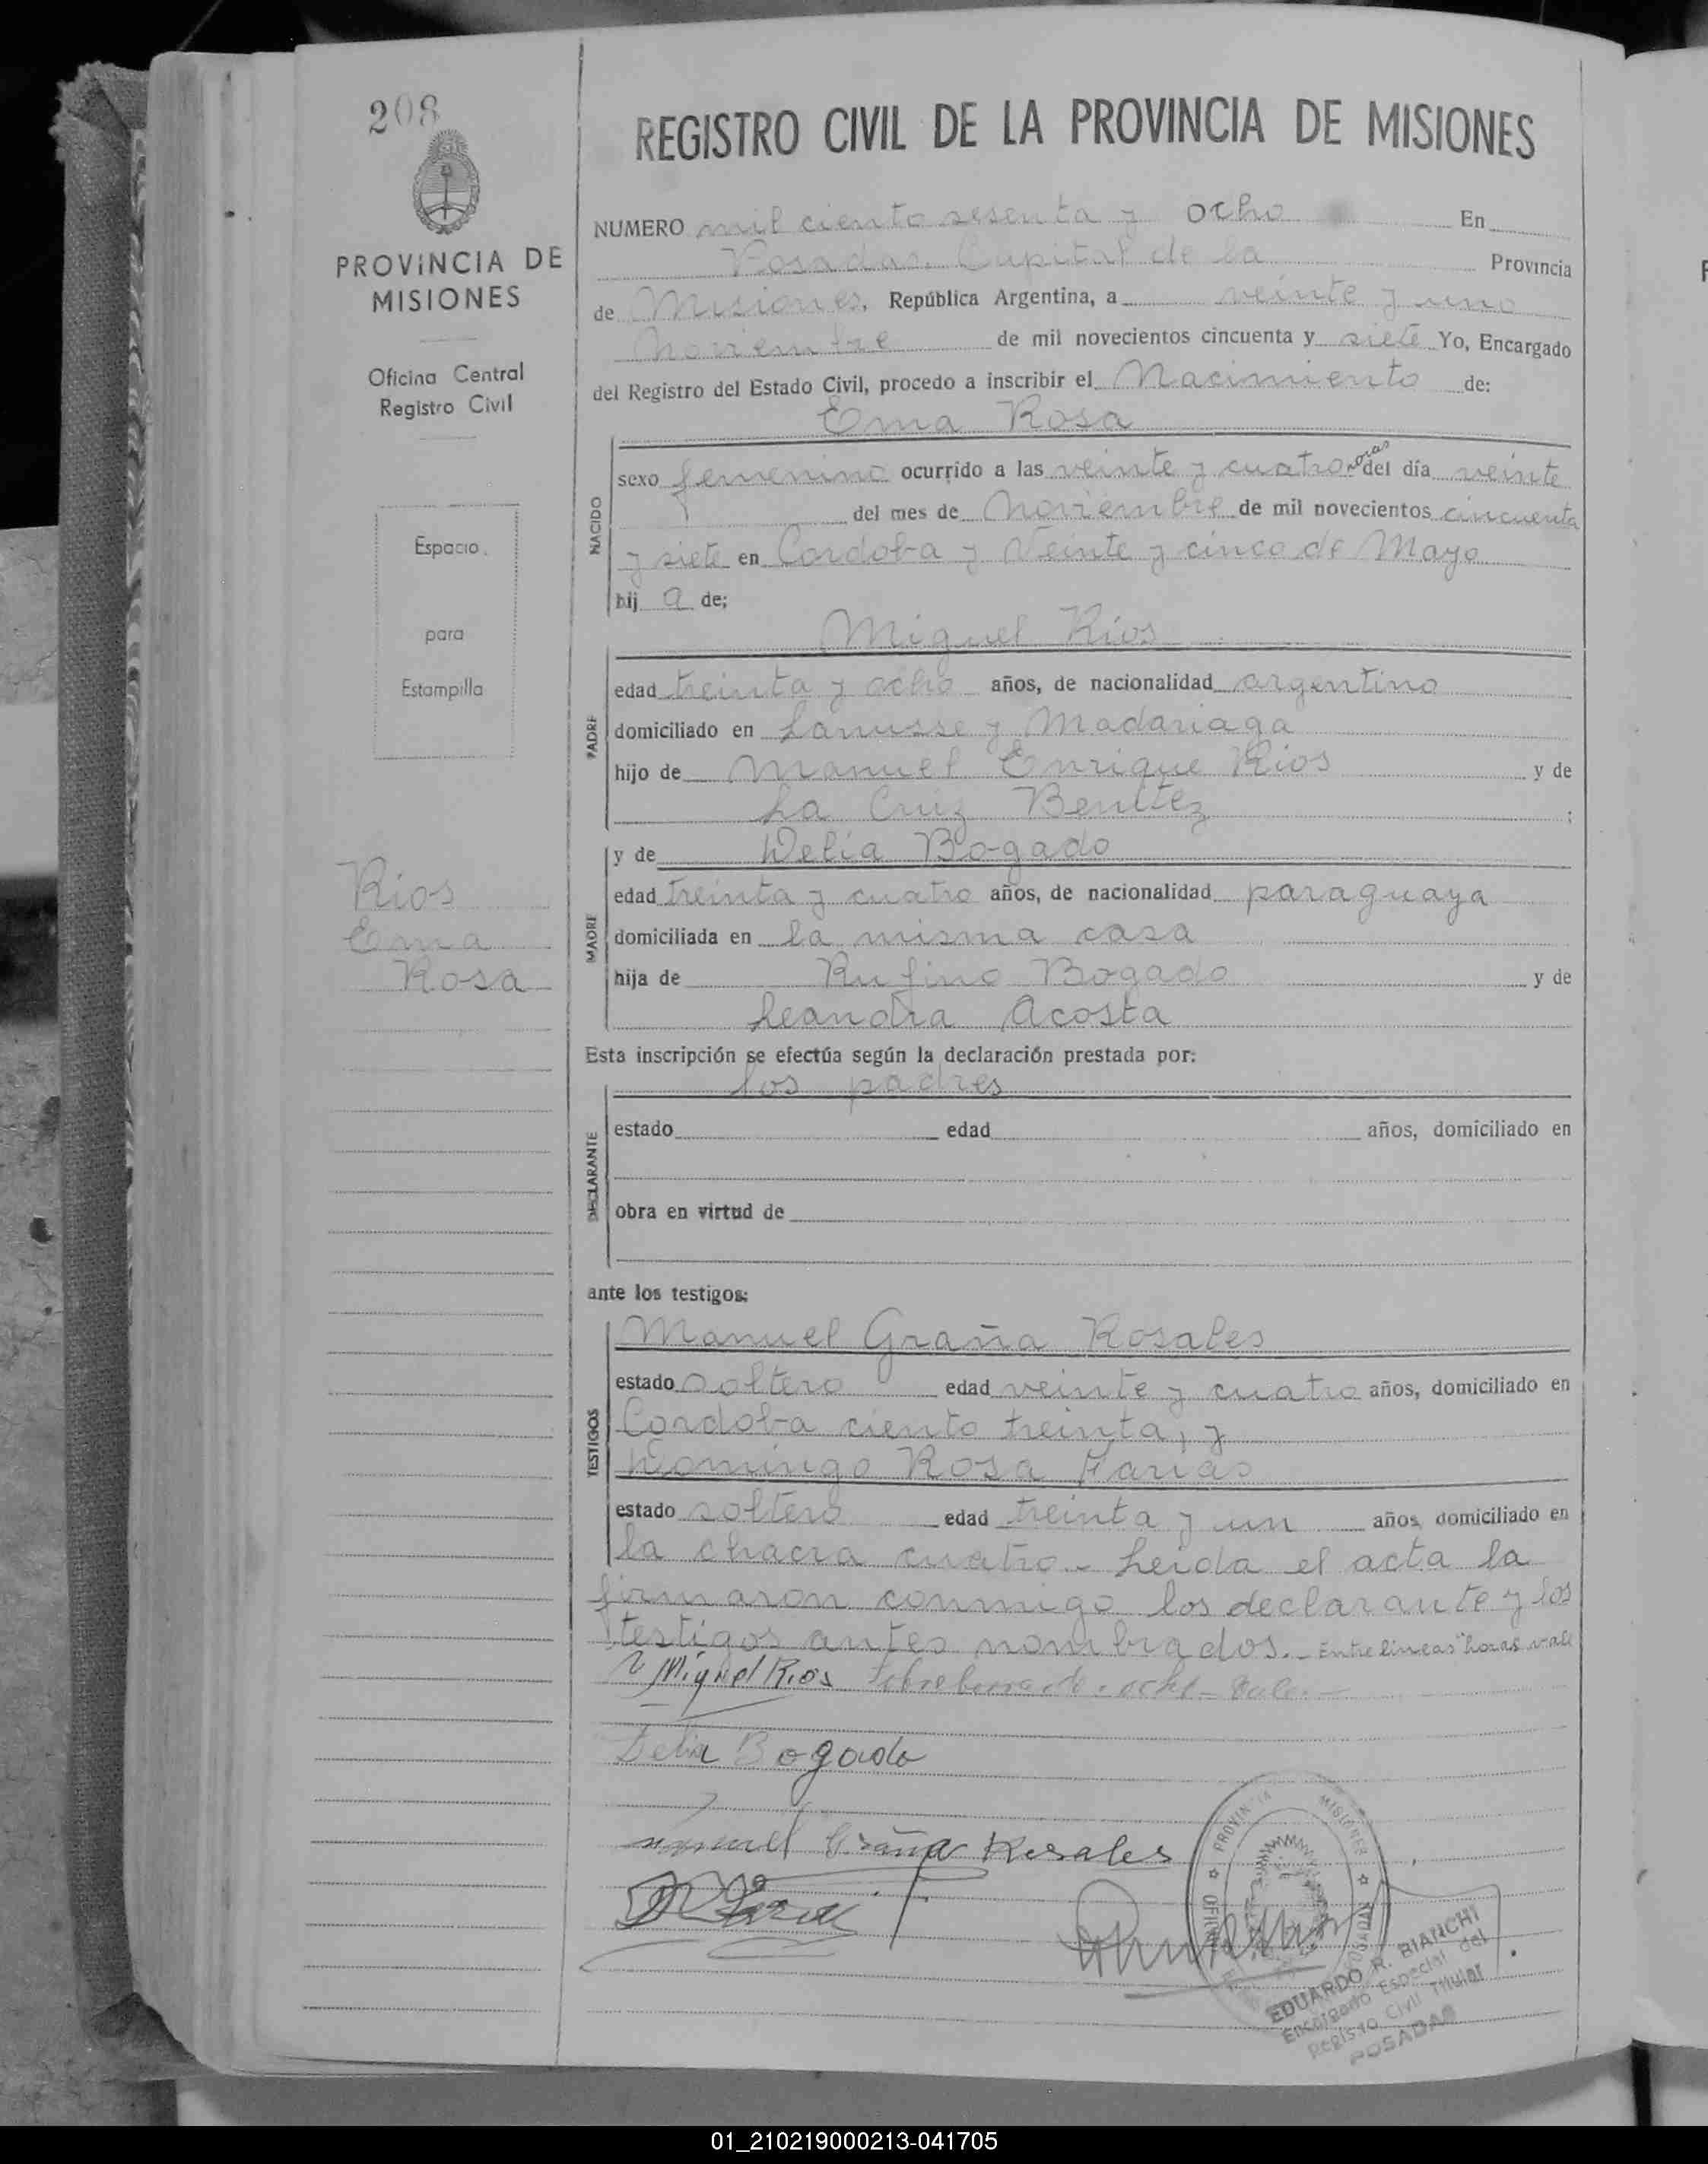 208
PROVINCIA DE
MISIONES
Oficina Central
Registro Civil
Espacio
para
Estampilla
Rios
Ema
Rosa
REGISTRO CIVIL DE LA PROVINCIA DE MISIONES
NUMERO mil ciento sesenta y ocho En
Posadas, Capital de la Provincia
de Misiones, República Argentina, a veinte y uno
Noviembre de mil novecientos cincuenta y siete Yo, Encargado
del Registro del Estado Civil, procedo a inscribir el Nacimiento de:
Ema Rosa
NACIDO
sexo femenino ocurrido a las veinte y cuatro horas del día veinte
del mes de Noviembre de mil novecientos cincuenta
y siete en Cordoba y Veinte y cinco de Mayo
hij a de;
Miguel Ríos
PADRE
edad treinta y ocho años, de nacionalidad argentino
domiciliado en Lanusse y Madariaga
hijo de Manuel Enrique Rios y de
La Cruz Benitez ;
MADRE
y de Delia Bogado
edad treinta y cuatro años, de nacionalidad paraguaya
domiciliada en la misma casa
hija de Rufino Bogado y de
Leandra Acosta
Esta inscripción se efectúa según la declaración prestada por:
los padres
DECLARANTE
estado edad años, domiciliado en
obra en virtud de
ante los testigos:
TESTIGOS
Manuel Graña Rosales
estado soltero edad veinte y cuatro años, domiciliado en
Cordoba ciento treinta, y
Domingo Rosa Farias
estado soltero edad treinta y un años, domiciliado en
la chacra cuatro - Leida el acta la
firmaron conmigo los declarante y los
testigos antes nombrados. - Entre lineas "horas vale
Miguel Rios Sobreborrado: ocho - Vale. -
Delia Bogado
Manuel Graña Rosales
PROVINCIA MISIONES
POSADAS
EDUARDO R. BIANCHI
Encargado Especial del
Registro Civil Titular
POSADAS
01_210219000213-041705